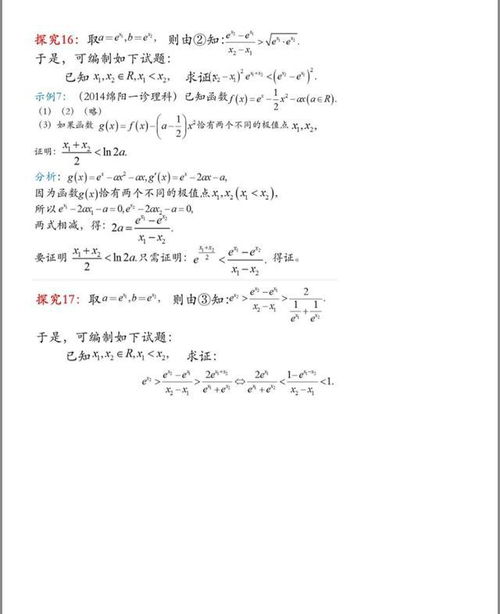 探究16：取a=e^{x₁},b=e^{x₂}, 则由②知:\frac{e^{x₂}-e^{x₁}}{x₂-x₁}>\sqrt{e^{x₁}·e^{x₂}}.
于是，可编制如下试题：
已知 x₁,x₂∈R,x₁<x₂, 求证(x₂-x₁)²e^{x₁+x₂}<(e^{x₂}-e^{x₁})².
示例7：（2014绵阳一诊理科）已知函数f(x)=e^x-\frac{1}{2}x²-ax(a∈R).
（1）（2）（略）
（3）如果函数 g(x)=f(x)-(a-\frac{1}{2})x²恰有两个不同的极值点 x₁,x₂,
证明：\frac{x₁+x₂}{2}<ln2a.
分析：g(x)=e^x-ax²-ax,g′(x)=e^x-2ax-a,
因为函数g(x)恰有两个不同的极值点x₁,x₂(x₁<x₂),
所以e^{x₁}-2ax₁-a=0,e^{x₂}-2ax₂-a=0,
两式相减，得：2a=\frac{e^{x₁}-e^{x₂}}{x₁-x₂}.
要证明 \frac{x₁+x₂}{2}<ln2a.只需证明：e^{\frac{x₁+x₂}{2}}<\frac{e^{x₁}-e^{x₂}}{x₁-x₂}. 得证。
探究17：取a=e^{x₁},b=e^{x₂}, 则由③知:e^{x₂}>\frac{e^{x₂}-e^{x₁}}{x₂-x₁}>\frac{2}{\frac{1}{e^{x₁}}+\frac{1}{e^{x₂}}}.
于是，可编制如下试题：
已知x₁,x₂∈R,x₁<x₂, 求证：
e^{x₂}>\frac{e^{x₂}-e^{x₁}}{x₂-x₁}>\frac{2e^{x₁+x₂}}{e^{x₁}+e^{x₂}}⇔\frac{2e^{x₁}}{e^{x₁}+e^{x₂}}<\frac{1-e^{x₁-x₂}}{x₂-x₁}<1.